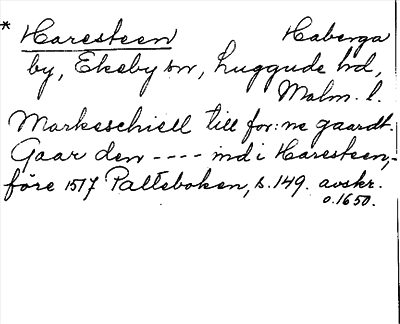 * Haresteen Haberga
by, Ekeby sn, Luggude hd,
Malm. l.
Markeschiell till for:ne gaardt.
Gaar den ---- ind i Haresteen,-
före 1517 Palteboken, s. 149. avskr.
o. 1650.